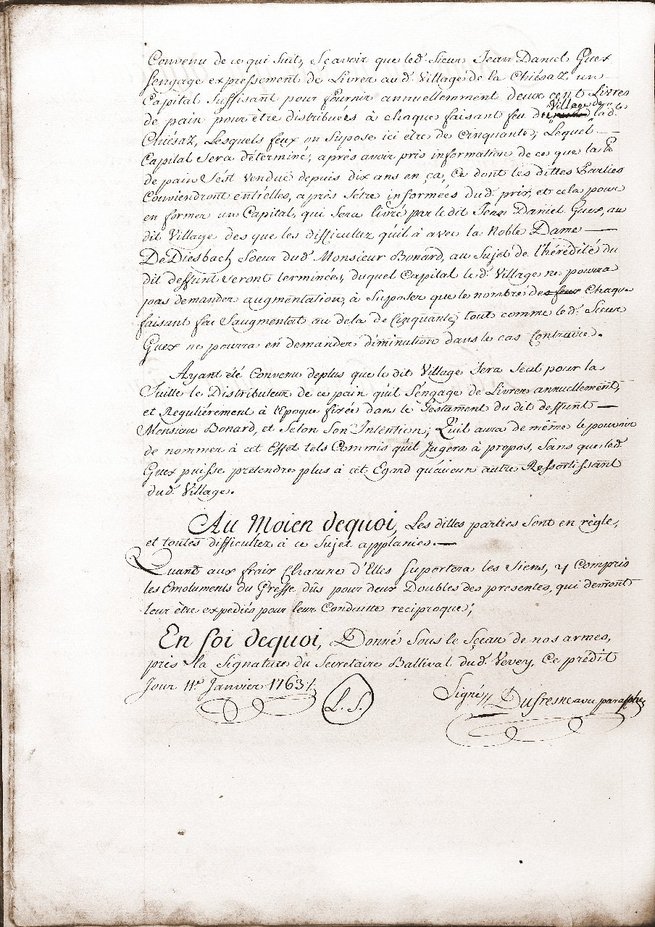 Convenu de ce qui Suit, Sçavoir que led. Sieur Jean Daniel Guex
sengage expressement de Livrer aud. Village de la Chiésaz un
Capital Suffisant pour fournir annuellemment deux cent Livres
de pain pour être distribuées à chaques faisant feu du Village de lad.
Chiésaz, Lesquels feux on Supose ici etre de Cinquante, Lequel
Capital Sera détermine, après avoir pris information de ce que la
de pain s'est vendue depuis dix ans en ça, Ce dont les dittes Parties
Conviendront entielles, après s'etre informées dud. prix, et cela pour
en former un Capital, qui Sera livré par le dit Jean Daniel Guex, au
dit Village des que les difficultez qu'il a avec la Noble Dame
De Diesbach Soeur dud. Monsieur Bonard, au Sujet de l'hérédité du
dit deffunt Seront terminées, duquel Capital led. Village ne pourra
pas demander augmentation, à Suposer que le nombre des feux Chaque
faisant feu s'augmentat au dela de Cinquante, tout comme led. Sieur
Guex ne pourra en demander diminution dans le cas Contraire.
Ayant été Convenu deplus que le dit Village Sera Seul pour la
Suitte le Distributeur de ce pain qu'il s'engage de Livrer annuellement,
et Regulièrement à l'époque fixée dans le Testament du dit deffunt
Monsieur Bonard, et Selon Son Intention; Qu'il aura de même le pouvoir
de nommer à cet Effet tels Commis qu'il Jugera à propos, Sans que led.
Guex puisse pretendre plus à cet Egard qu'aucun autre Ressortissant
dud. Village.
Au Moien dequoi, Les dittes parties Sont en règle,
et toutes difficultez à ce Sujet applanies.
Quant aux fraix Chacune d'Elles Suportera les Siens, y Compris
les Emoluments du Greffe dûs pour deux Doubles des presentes, qui devront
leur être expediés pour leur Conduitte reciproque;
En foi dequoi, Donné Sous le Sçeau de nos armes,
près la Signature du Secretaire Ballival dud. Vevey, Ce prédit
Jour 11e. Janvier 1763.
L.S.
Signé, Dufresne avec paraphe